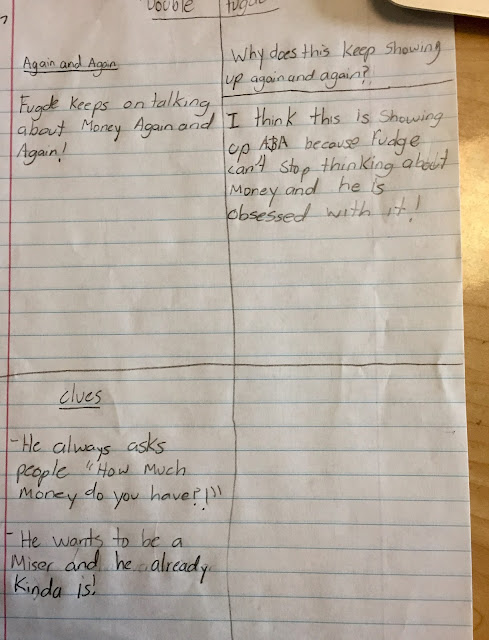 Double Fugde
Again and Again
Fugde keeps on talking
about Money Again and
Again!
Why does this keep showing
up again and again?
I think this is showing
up ABA because Fudge
can't stop thinking about
Money and he is
obsessed with it!
clues
- He always asks
people "How Much
Money do you have?!"
- He wants to be a
Miser and he already
Kinda is!